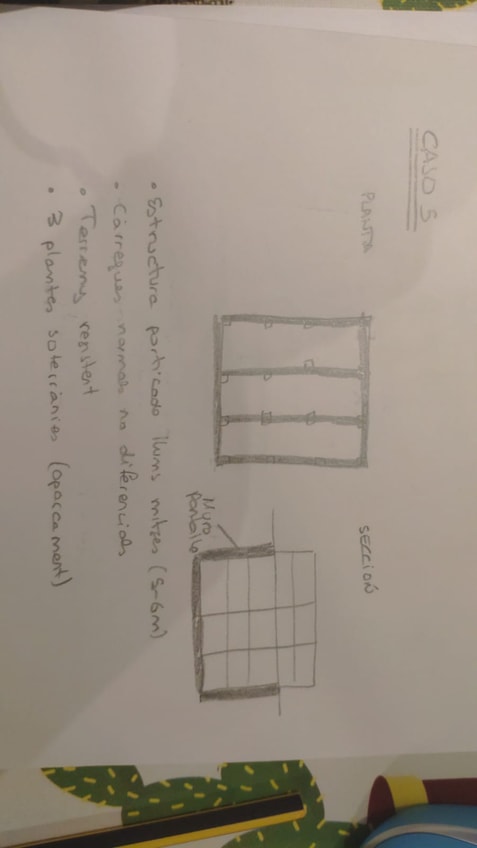 CASO 5
PLANTA
SECCIÓN
Muro
Pantalla
• Estructura porticada llums mitges (5-6m)
• Càrregues normals no diferencials
• Terreny resistent
• 3 plantes soterrànies (aparcament)